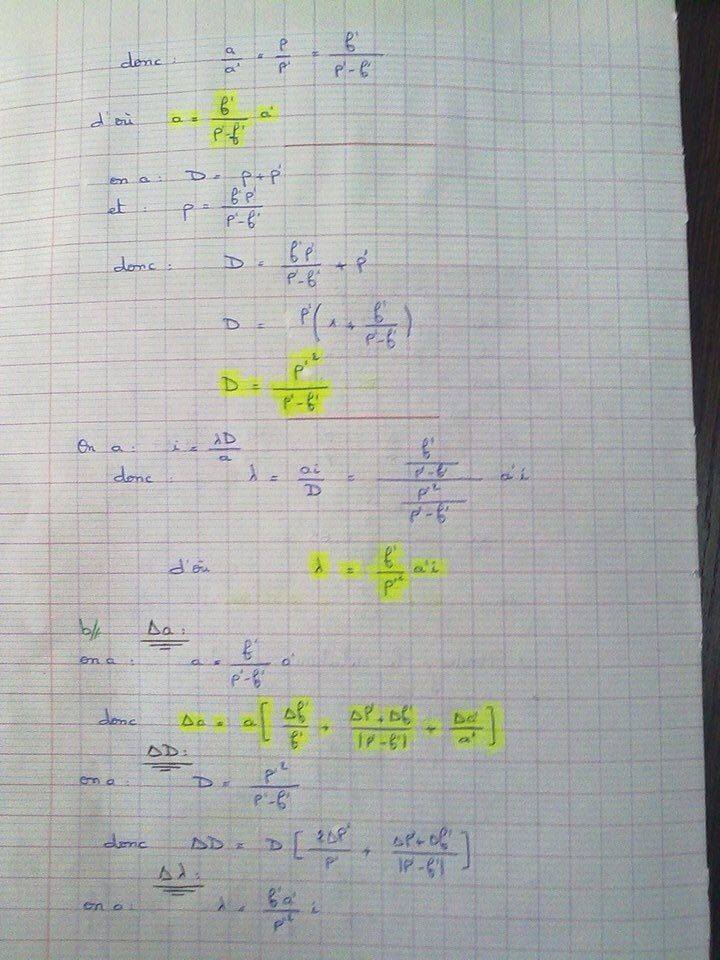 donc : a/a' = p/p' = f'/(p'-f')
d'où a = f'/(p'-f') a'
on a : D = p + p'
et : p = f'p'/(p'-f')
donc : D = f'p'/(p'-f') + p'
D = p'(1 + f'/(p'-f'))
D = p'²/(p'-f')
On a : i = λD/a
donc : λ = ai/D = (f'/(p'-f'))/(p'²/(p'-f')) a'i
d'où λ = f'/p'² a'i
b// Δa :
on a : a = f'/(p'-f') a'
donc Δa = a[Δf'/f' + (Δp'+Δf')/|p'-f'| + Δa'/a']
ΔD :
on a : D = p'²/(p'-f')
donc ΔD = D[2Δp'/p' + (Δp'+Δf')/|p'-f'|]
Δλ :
on a : λ = f'a'/p'² i